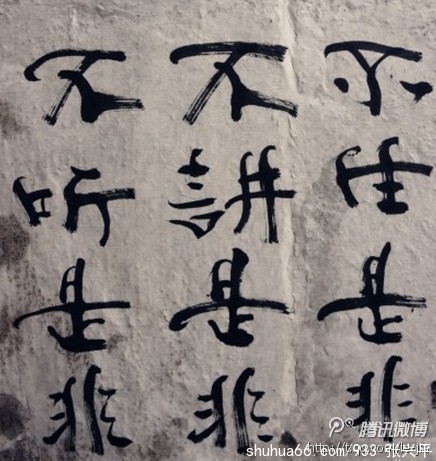 不生是非
不讲是非
不听是非
腾讯微博
张兴平